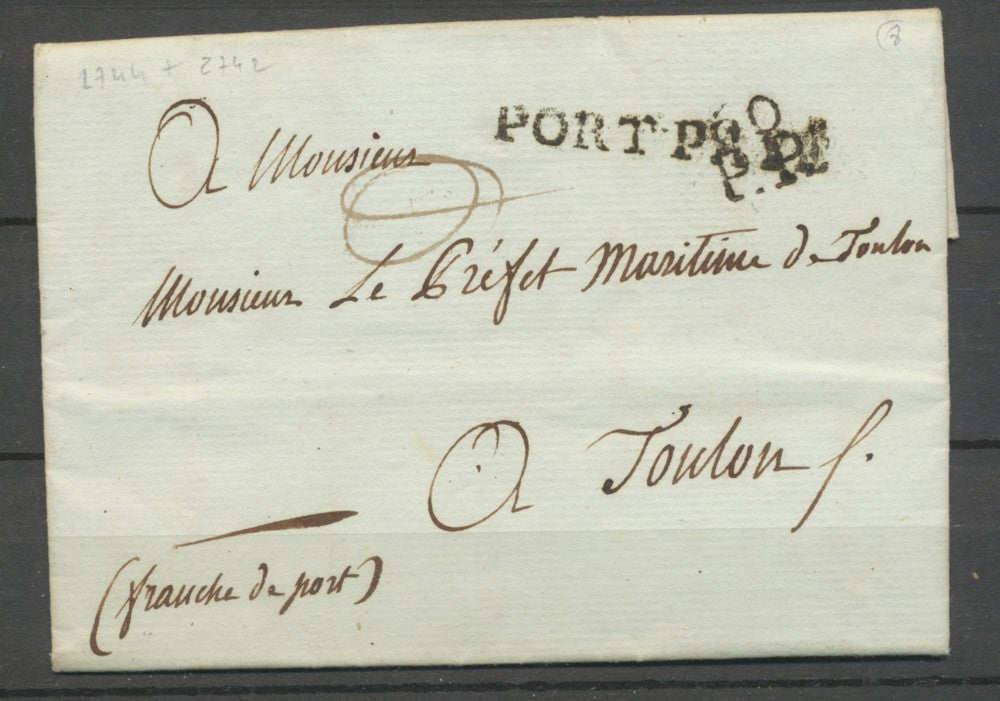 1744 + 2742
8
PORT·PAYÉ
80
P.P.
A Monsieur
Monsieur Le Préfet Maritime de Toulon
A Toulon
(franche de port)